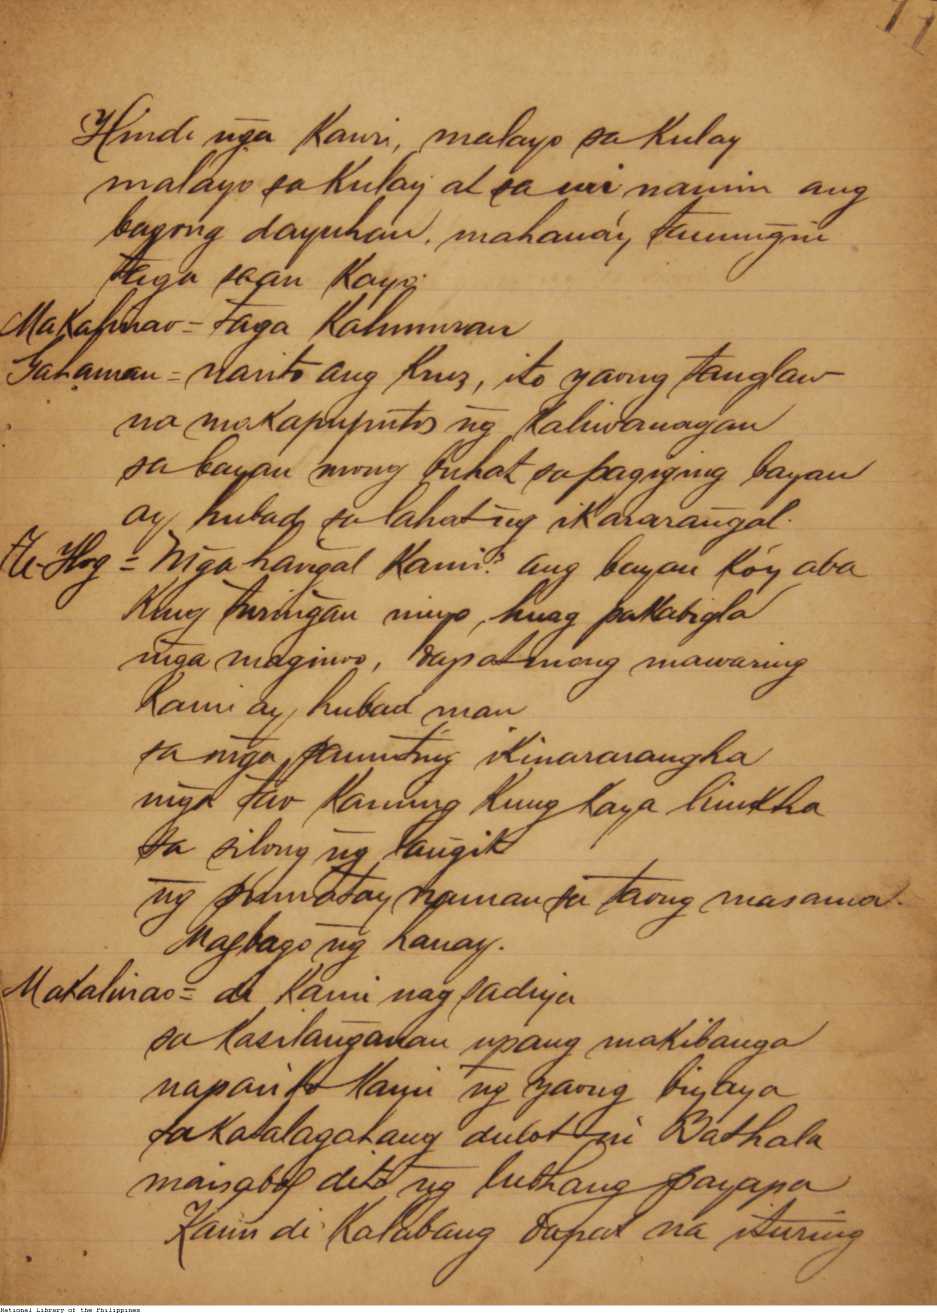 11
Hindi n͠ga Kami, malayo sa Kulay
malayo sa Kulay at sa uri namin ang
bagong dayuhan. mahanáy, tanun͠gin
taga saan Kayo.
Makalinao = taga Kalunuran
Gahaman = narito ang Kruz, ito yaong tanglaw
na makapupútos n͠g Kaliwanagan
sa bayan mong buhat sa pagiging bayan
ay hubad sa lahat n͠g ikararan͠gal.
= M͠ga han͠gal Kami? ang bayan Kóy aba
Kung turin͠gan ninyo, huag pakabigla
m͠ga maginoo, dapat mong mawaring
Kami ay hubad man
sa m͠ga ikinararangha
m͠ga táo Kaming Kung Kaya linikha
sa silong n͠g lan͠git
n͠g pumatay naman sa taong masama.
Magbago n͠g hanay.
Makalinao = di Kami nag sadiya
sa Kasilan͠ganan upang makibanga
naparito Kami n͠g yaong biyaya
sa Kataalagahang dulot ni Bathala
maisabog dito n͠g lubhang payapa
Kami di Kalabang dapat na ituring
National Library of the Philippines